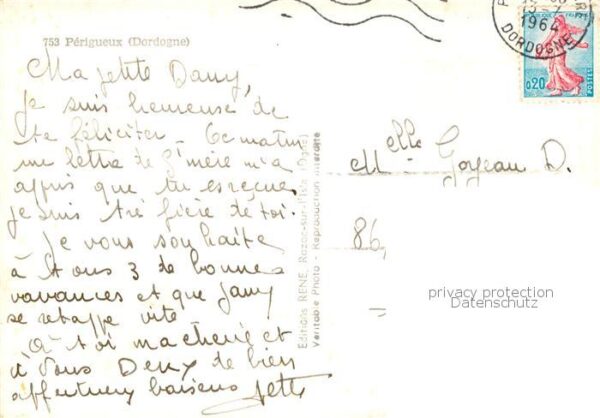 753 Périgueux (Dordogne)
Ma petite Dany,
je suis heureuse de
te féliciter. Ce matin
une lettre de G'mère m'a
appris que tu es reçue
je suis très fière de toi.
Je vous souhaite
à tous 3 de bonnes
vacances et que Jany
se retape vite
à toi ma chérie et
à vous Deux de bien
affectueux baisers
Editions RENÉ, Razac-sur-l'Isle (Dgne)
Véritable Photo - Reproduction interdite
1964
DORDOGNE
REPUBLIQUE FRANÇAISE
0,20
POSTES
Melle Goyeau D.
86,
privacy protection
Datenschutz